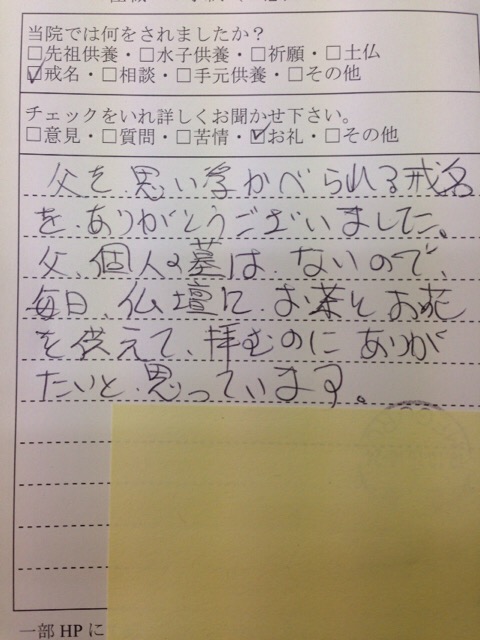 当院では何をされましたか？
□先祖供養・□水子供養・□祈願・□土仏
☑戒名・□相談・□手元供養・□その他
チェックをいれ詳しくお聞かせ下さい。
□意見・□質問・□苦情・☑お礼・□その他
父を思い学かべられる戒名
を、ありがとうございました。
父、個人の墓は、ないので、
毎日、仏壇に、お茶とお花
を供えて、拝むのにありが
たいと、思っています。
一部HPに